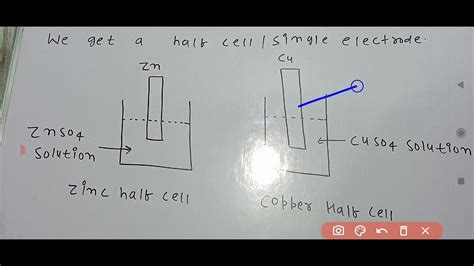 We get a half cell / single electrode.
Zn
Cu
ZnSO4
Solution
CuSO4 Solution
Zinc half cell
Copper Half Cell